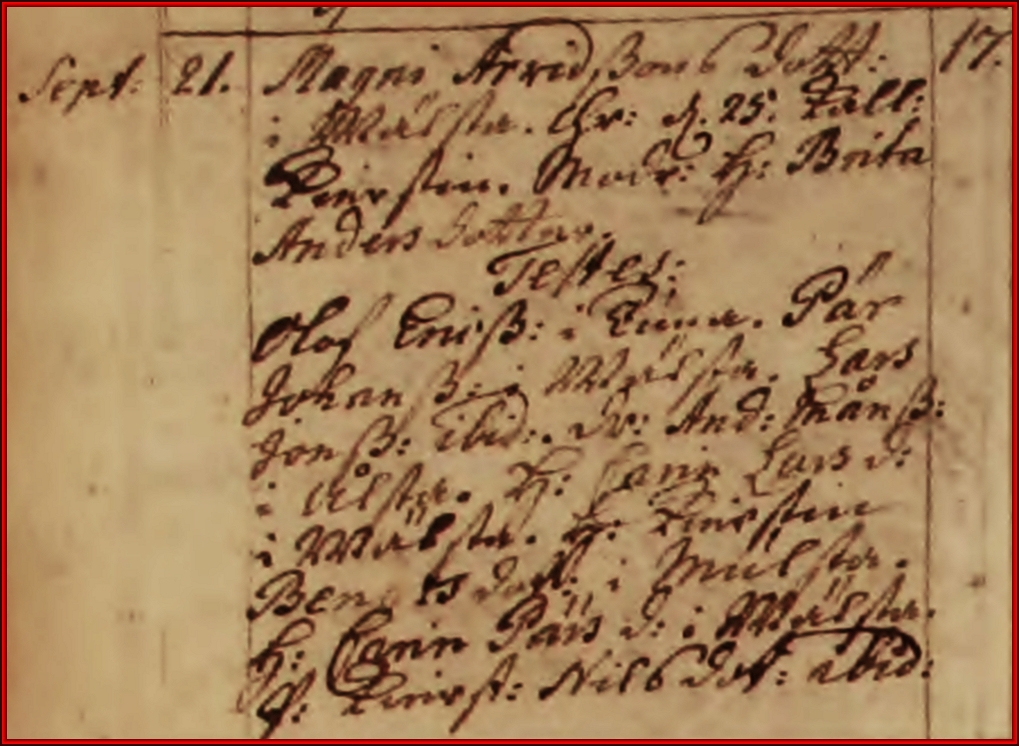 Sept: 21. Magni Arvidßons dott: 17.
i Wälsta. Chr: d. 25. Kall:
Kierstin. Modr: H: Brita
Anders dotter.
Testes:
Olof Ericß: i Tuna. Pär
Johanß: i Wälsta. Lars
Jonß: ibid: dr: And: Månß:
i Ålsta. H: Carin Lars d:
i Wälsta. H: Kierstin
Bengts dott: i Mulsta.
H: Carin Pärs d: i Wälsta.
P: Kierst: Nils dot: ibid: